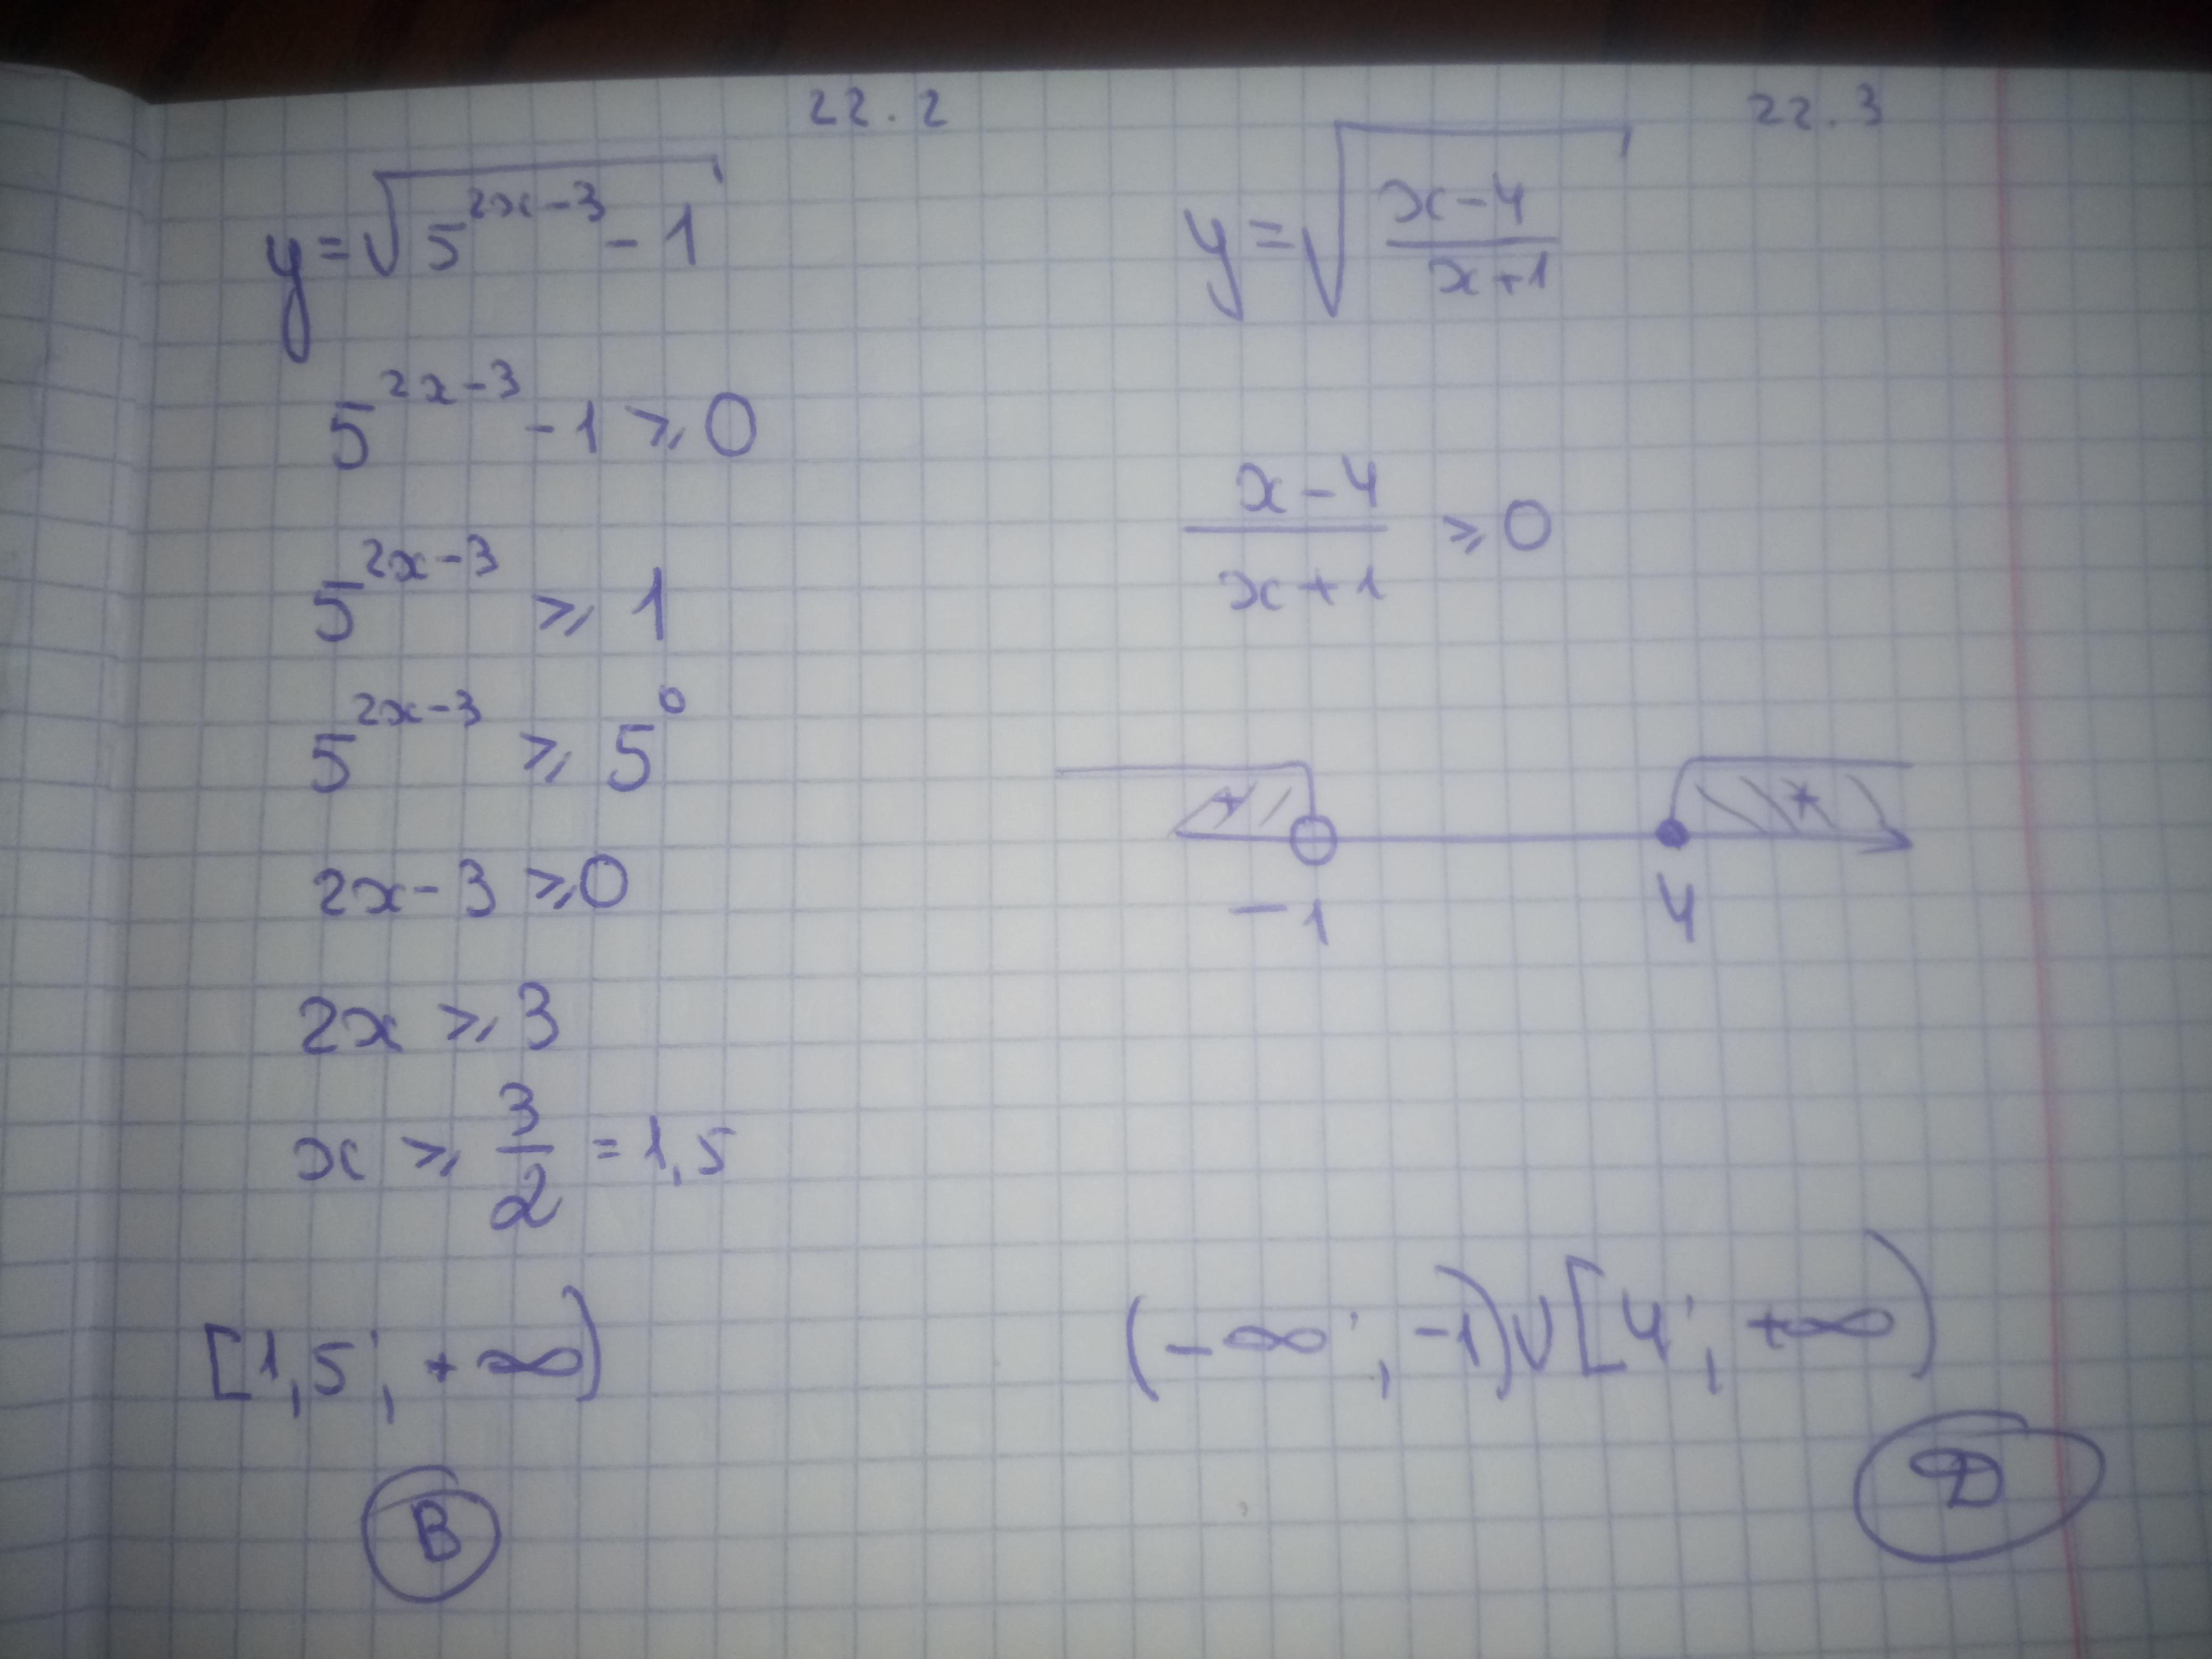 22.2
y=√(5^(2x-3) - 1)
5^(2x-3) - 1 ⩾ 0
5^(2x-3) ⩾ 1
5^(2x-3) ⩾ 5^0
2x - 3 ⩾ 0
2x ⩾ 3
x ⩾ 3/2 = 1,5
[1,5; +∞)
B
22.3
y=√((x-4)/(x+1))
(x-4)/(x+1) ⩾ 0
+ +
-1 4
(-∞; -1)∪[4; +∞)
D